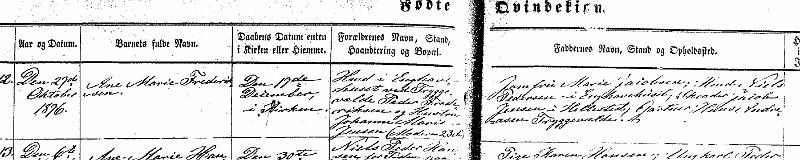 Fødte
Qvindekiøn.
Aar og Datum.
Barnets fulde Navn.
Daabens Datum enten
i Kirken eller Hjemme.
Forældrenes Navn, Stand,
Haandtering og Bopæl.
Faddernes Navn, Stand og Opholdssted.
12.
Den 27de
Oktober
1876.
Ane Marie Frederik-
sen.
Den 17de
December,
i Kirken
Hmd i Enghave-
huset ved Trygge-
vælde Peder Frede-
riksen og Hustru
Johanne Marie
Jensen
Jomfru Marie Jacobsen, Hmd. Niels
Pedersen i Enghavehuset, Skræder Jacob
Jensen i Hellested, Gartner Hans
Tryggevælde
13.
Den 6te
Ane Marie Han
Den 30te
Niels Peder Han
Pige Karen Hansen, Ungkarl Peder